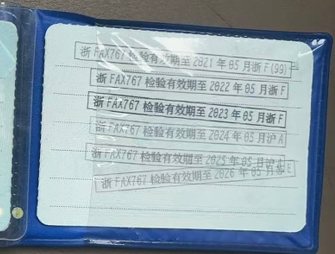 浙 FAX767 检验有效期至 2021 年 05 月浙 F (99)
浙 FAX767 检验有效期至 2022 年 05 月浙 F
浙 FAX767 检验有效期至 2023 年 05 月浙 F
浙 FAX767 检验有效期至 2024 年 05 月沪 A
浙 FAX767 检验有效期至 2025 年 05 月沪
浙 FAX767 检验有效期至 2026 年 05 月 E